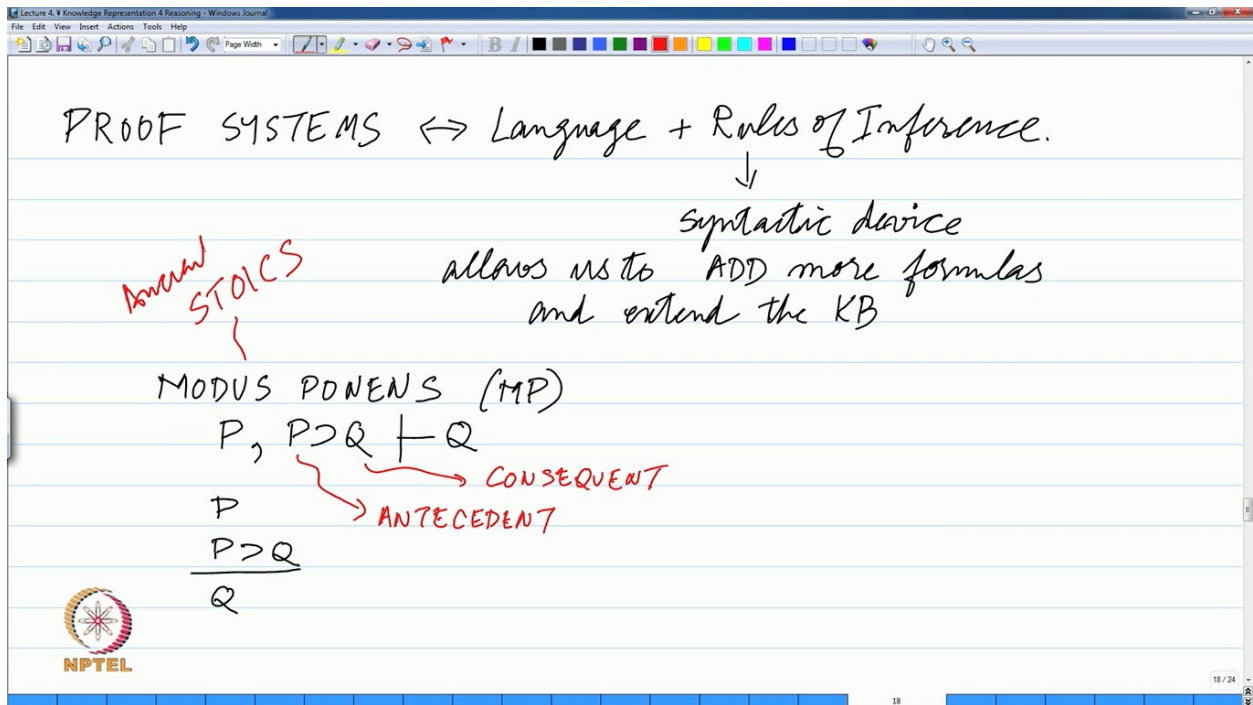 Lecture 4. ¥ Knowledge Representation 4 Reasoning - Windows Journal
File Edit View Insert Actions Tools Help
Page Width
PROOF SYSTEMS ↔ Language + Rules of Inference.
↓
syntactic device
allows us to ADD more formulas
and extend the KB
STOICS
MODUS PONENS (MP)
P, P⊃Q ⊢ Q
CONSEQUENT
ANTECEDENT
P
P⊃Q
Q
NPTEL
18 / 24
18